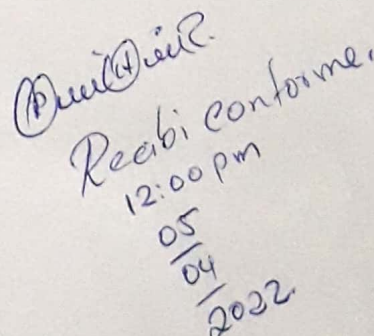 Recibi conforme.
12:00 pm
05/04/2022